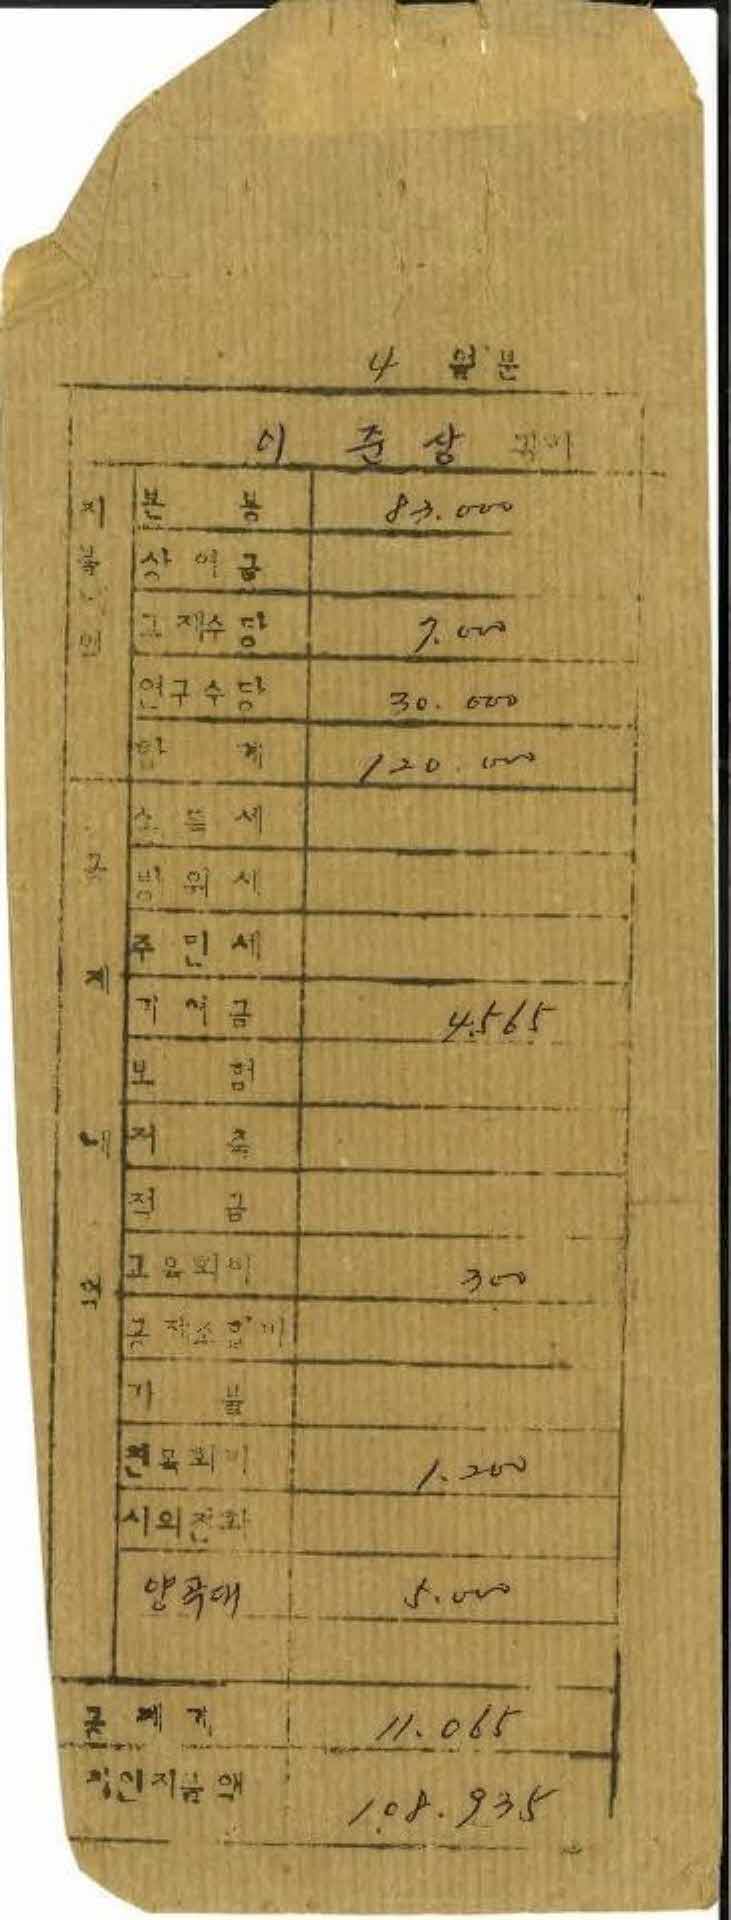 4 월분
이 준 상 귀하
지불내역
본 봉 83.000
상 여 금
교재수당 7.000
연구수당 30.000
합 계 120.000
공제내역
소 득 세
방 위 세
주 민 세
기 여 금 4.565
보 험
저 축
적 금
교육회비 300
가 불
친목회비 1.200
시외전화
양곡대 5.000
공 제 계 11.065
차인지불액 108.935